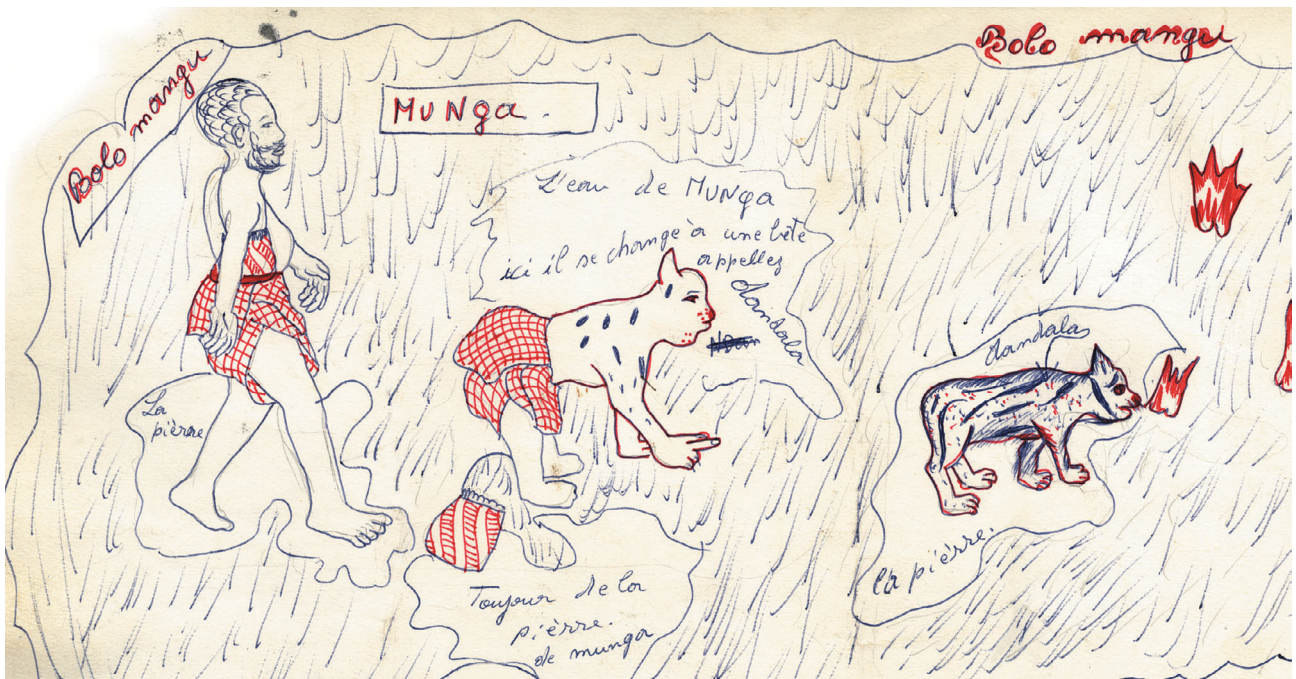 Bolo mangu
Bolo mangu
MUNga.
L'eau de MUNga
ici il se change à une bête
appellez
dandala
La
pièrre
dandala
la pièrre
Toujour de la
pièrre.
de munga